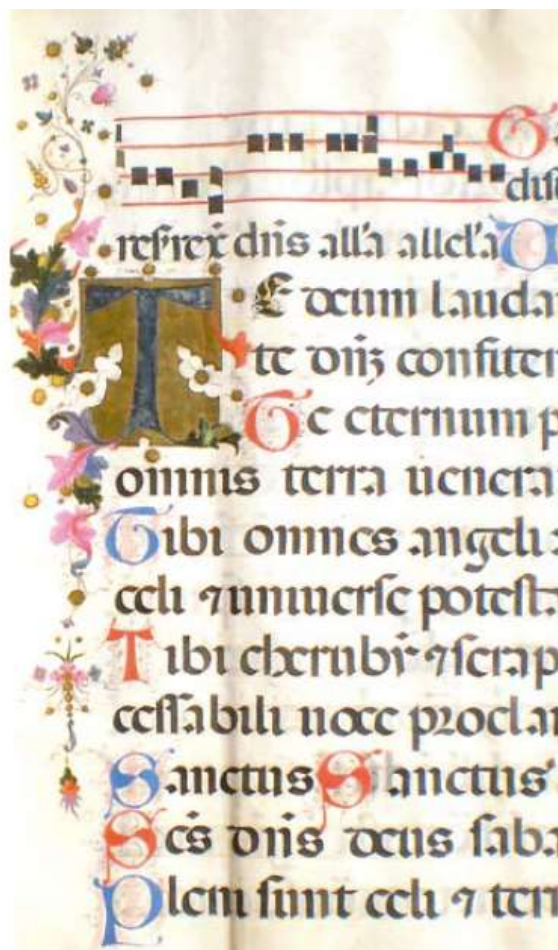 dns all'a allel'a
TE deum lauda
te dnʒ confiter
Te eternum p
omnis terra uenera
Tibi omnes angeli
celi ⁊ uniuerſe poteſt
Tibi cherubī ⁊ ſerap
ceſſabili uoce proclam
Sanctus Sanctus
Scs dns deus ſaba
Pleni ſunt celi ⁊ terr